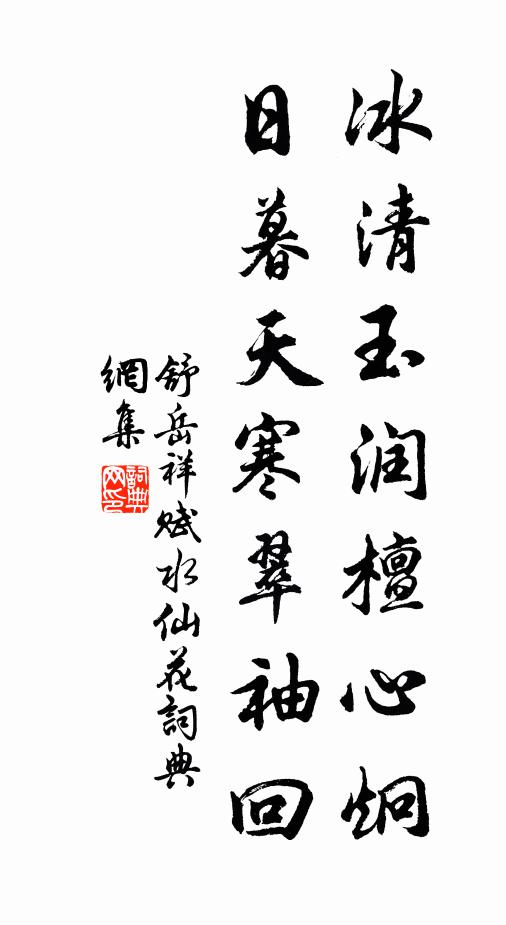 冰清玉润檀心炯
日暮天寒翠袖回
舒岳祥赋水仙花詞典
網集
詞典網印